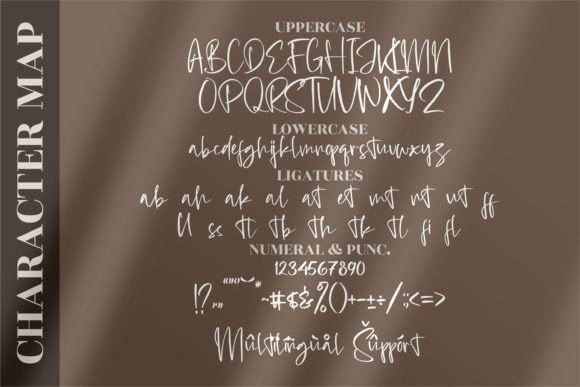 CHARACTER MAP
UPPERCASE
ABCDEFGHIJKLMN
OPQRSTUVWXYZ
LOWERCASE
abcdefghijklmnopqrstuvwxyz
LIGATURES
ab ah ak al at et mt nt ut ff
ll ss tt tb th tk tl fi fl
NUMERAL & PUNC.
1234567890
~#$&%()+-±÷/:;<=>
Mûltîlîngùál Šûppórt